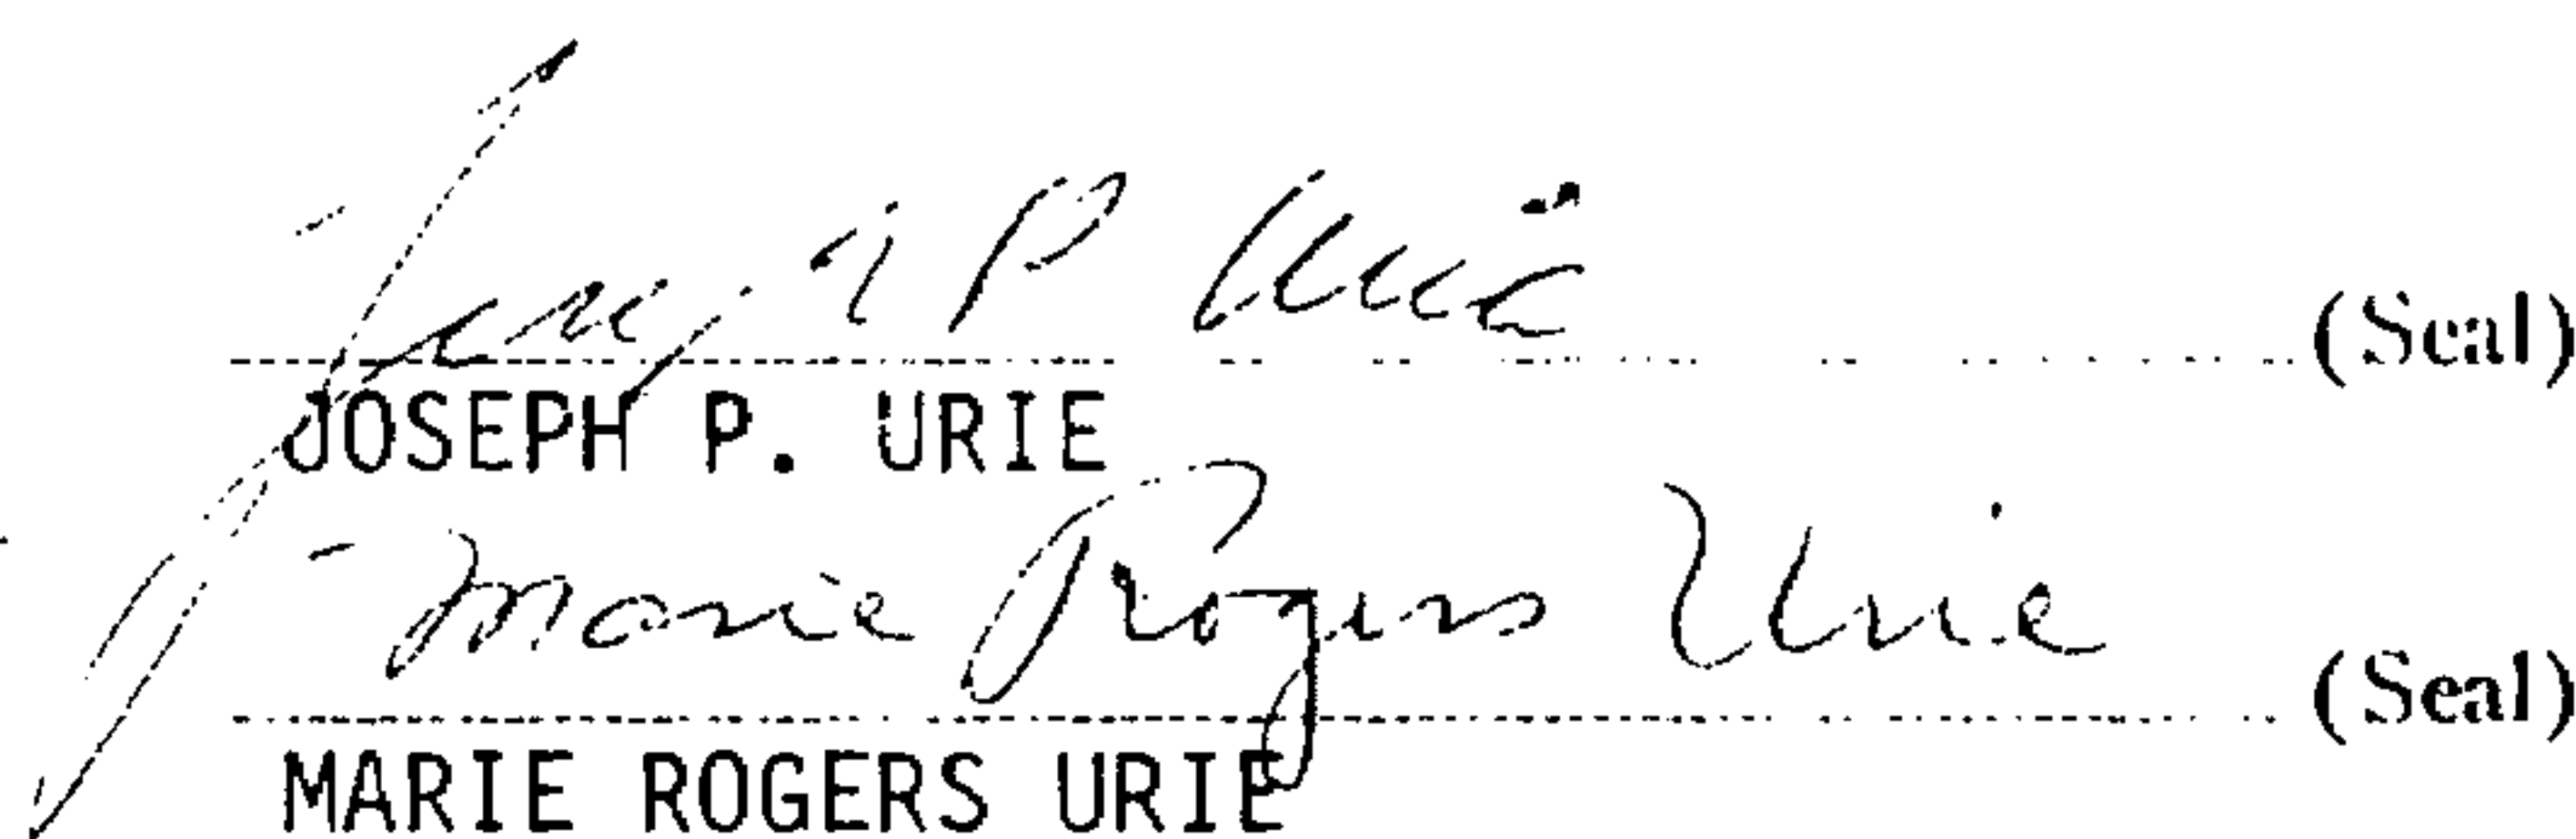 Joseph P Urie (Seal)
JOSEPH P. URIE
Marie Rogers Urie (Seal)
MARIE ROGERS URIE